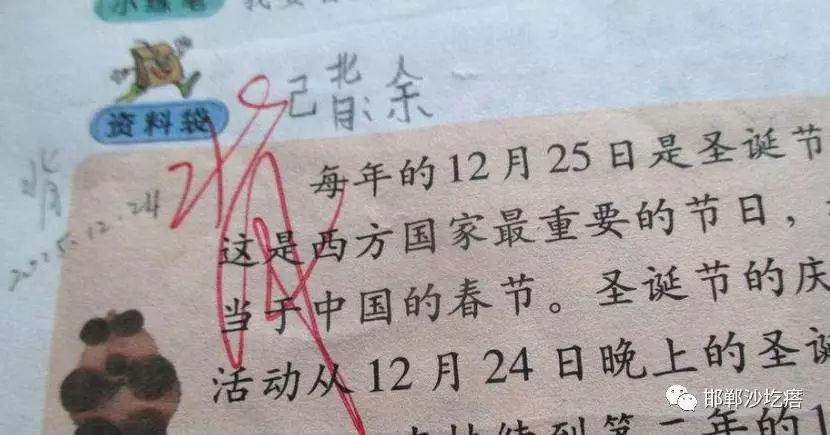 小练笔
资料袋
已背:余
背
2015.12.24
每年的12月25日是圣诞节
这是西方国家最重要的节日,
当于中国的春节。圣诞节的庆
活动从12月24日晚上的圣诞
邯郸沙圪瘩